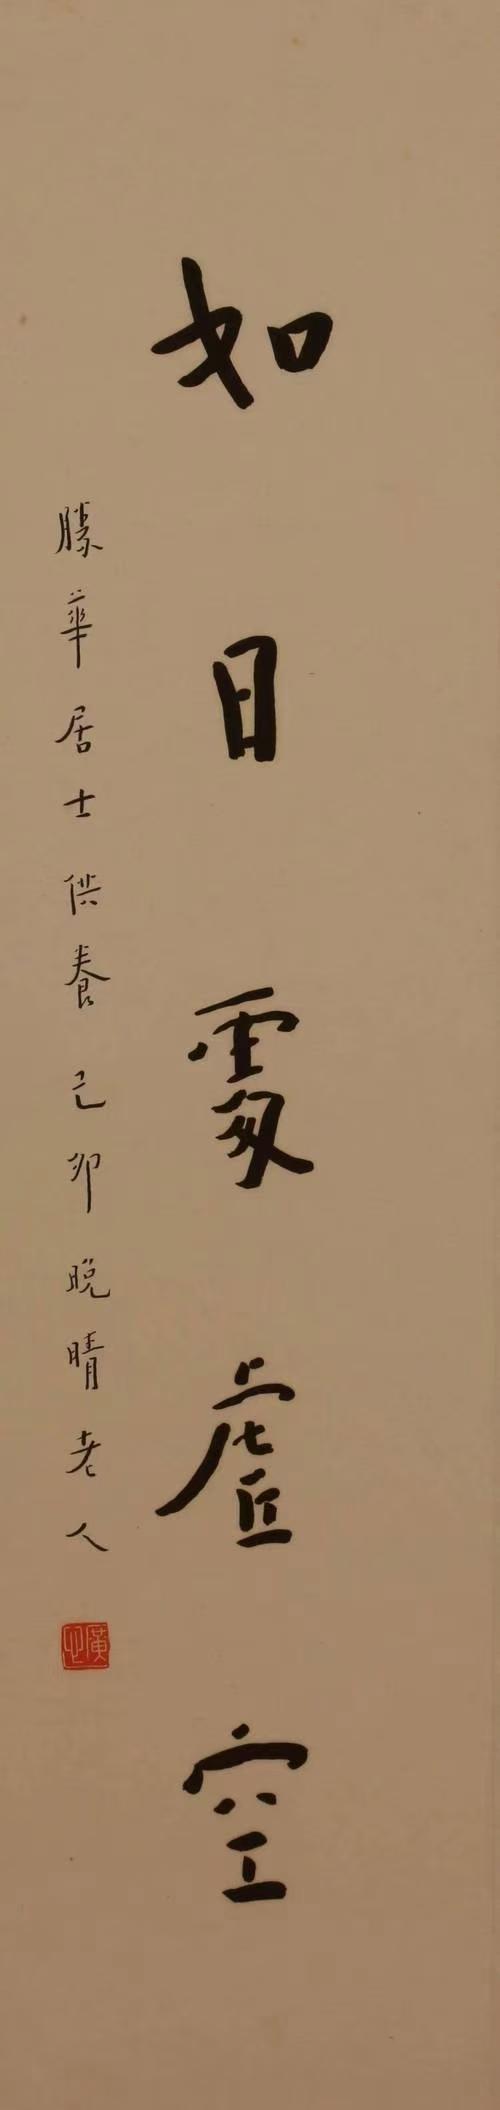 如日處虛空
勝華居士供養己卯晚晴老人